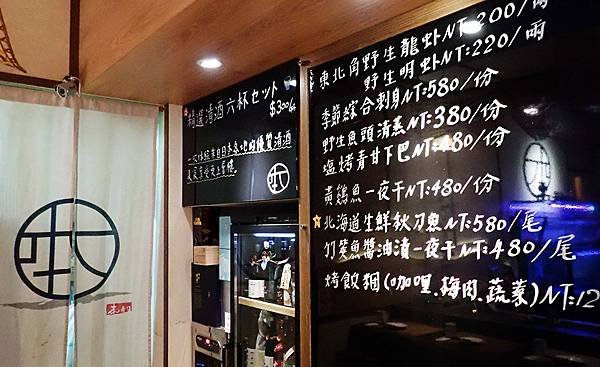 精選清酒六杯セット
$300
一次体験來自日本各地的優質清酒
東北角野生龍虾NT:200/兩
野生明虾NT:220/兩
季節綜合刺身NT:580/份
野生魚頭清蒸NT:380/份
塩烤青甘下巴NT:480/份
黄鷄魚一夜干NT:480/份
北海道生鮮秋刀魚NT:580/尾
竹筴魚醬油漬一夜干NT:480/尾
烤飯糰(咖哩,梅肉,蔬菜)NT:12